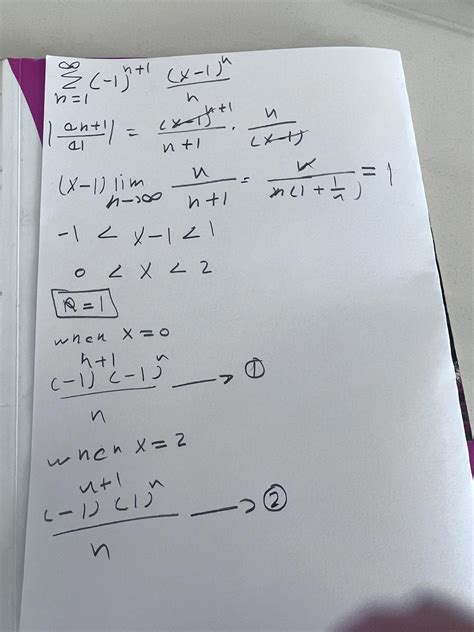 ∞
Σ (-1)^{n+1} (x-1)^n / n
n=1
|a_{n+1}/a| = (x-1)^{n+1} / n+1 · n / (x-1)
(x-1) lim n→∞ n / n+1 = n / n(1 + 1/n) = 1
-1 < x-1 < 1
0 < x < 2
R=1
when x=0
(-1)^{n+1} (-1)^n / n → ①
when x=2
(-1)^{n+1} (1)^n / n → ②